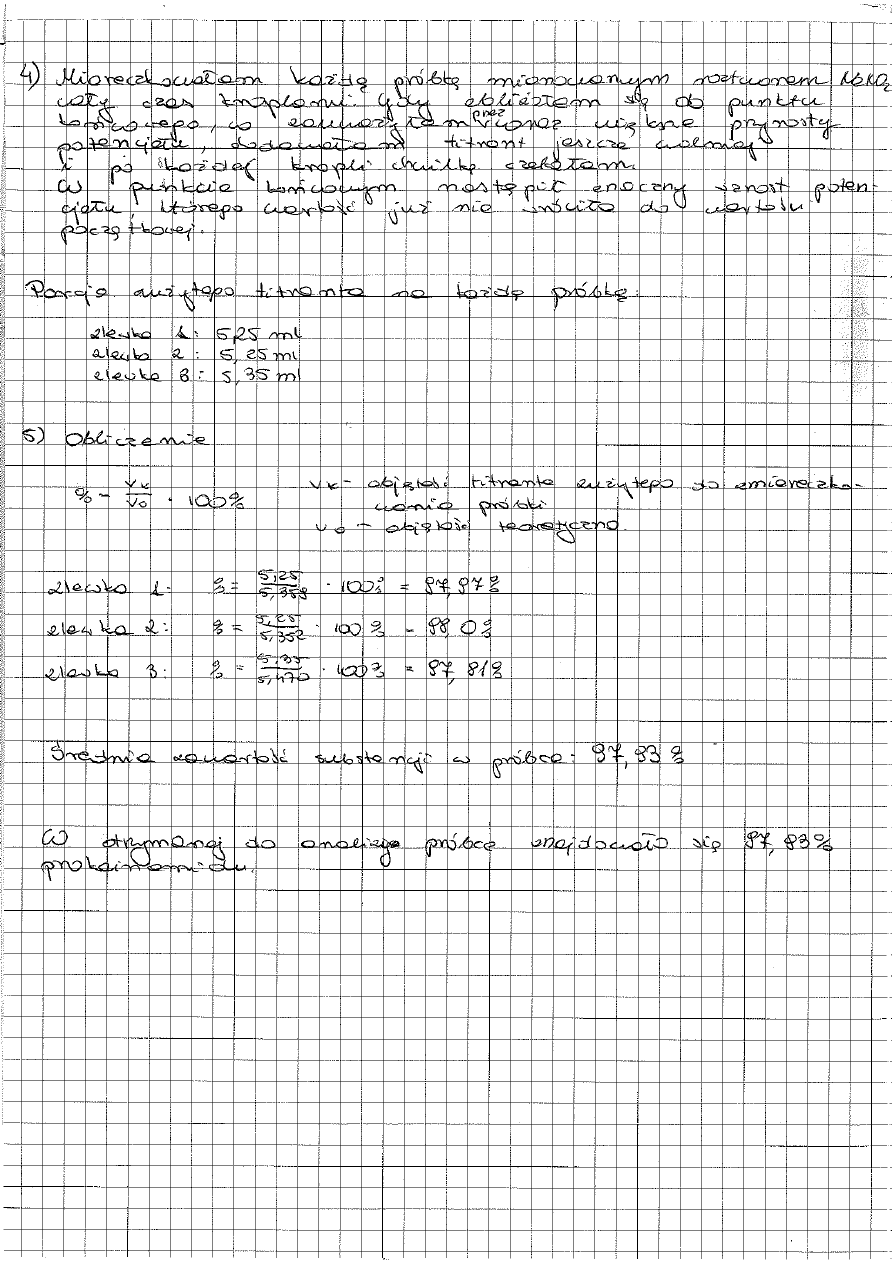 4) Miareczkowałam każdą próbkę mianowanym roztworem NaNO2
cały czas kroplami. Gdy zbliżałam się do punktu
końcowego, co zauważyłam przez coraz większe przyrosty
potencjału, dodawałam titrant jeszcze wolniej
i po każdej kropli chwilkę czekałam.
W punkcie końcowym nastąpił znaczny wzrost poten-
cjału, którego wartość już nie wróciła do wartości
początkowej.
Porcje zużytego titranta na każdą próbkę:
zlewka 1: 5,25 ml
zlewka 2: 5,25 ml
zlewka 3: 5,35 ml
5) Obliczenie
% = Vk/Vo · 100%
Vk - objętość titranta zużytego do zmiareczko-
wania próbki
Vo - objętość teoretyczna
zlewka 1: % = 5,25/5,359 · 100% = 97,97%
zlewka 2: % = 5,25/5,352 · 100% = 98,0%
zlewka 3: % = 5,35/5,470 · 100% = 97,81%
Średnia zawartość substancji w próbce: 97,93%
W otrzymanej do analizy próbce znajdowało się 97,93%
prokainamidu.